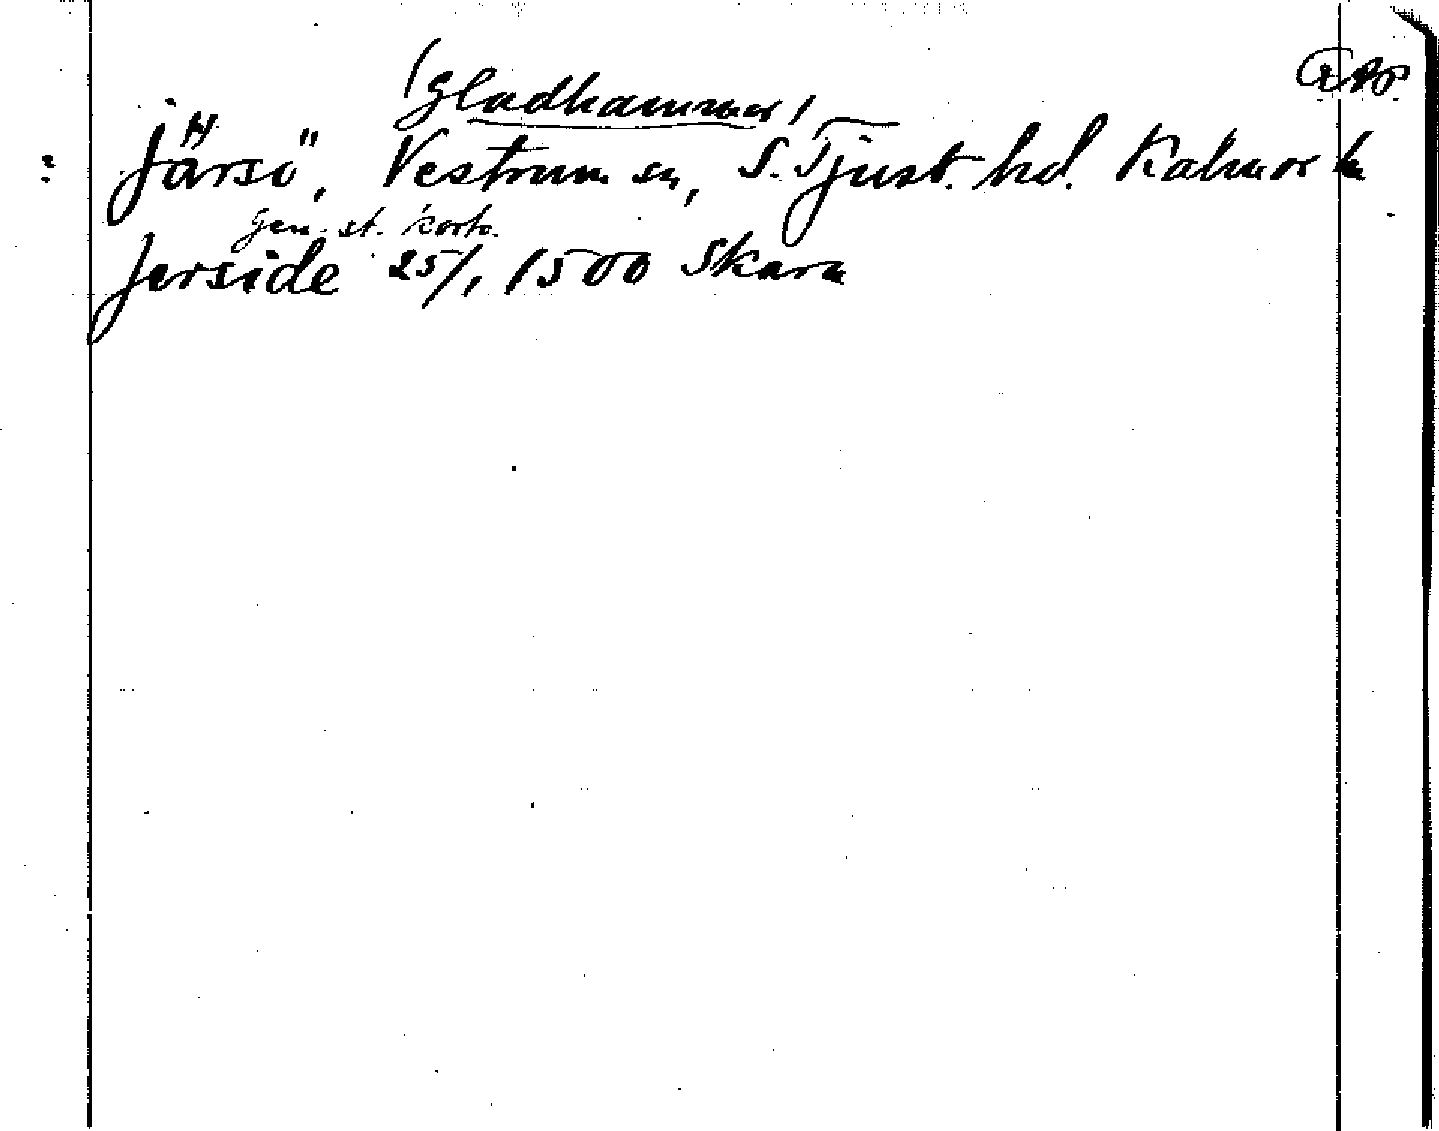 (Gladhammar)
Järsö, Vestrum sn, S. Tjust. hd. Kalmar ln
Gen. st. korts.
Jerside 25/1 1500 Skara